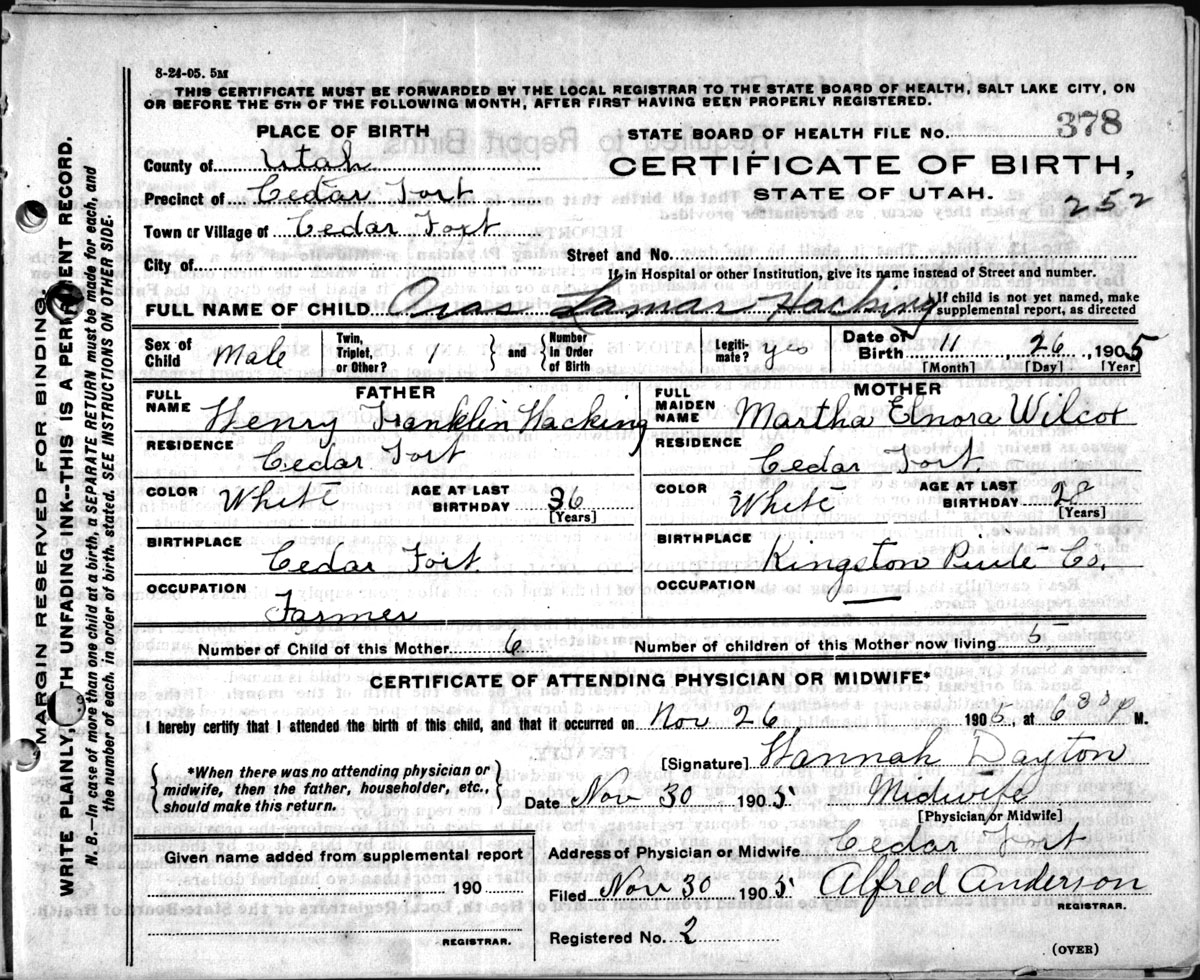 8-24-05. 5M
THIS CERTIFICATE MUST BE FORWARDED BY THE LOCAL REGISTRAR TO THE STATE BOARD OF HEALTH, SALT LAKE CITY, ON
OR BEFORE THE 5TH OF THE FOLLOWING MONTH, AFTER FIRST HAVING BEEN PROPERLY REGISTERED.
PLACE OF BIRTH
County of Utah
Precinct of Cedar Fort
Town or Village of Cedar Fort
City of
STATE BOARD OF HEALTH FILE No. 378
CERTIFICATE OF BIRTH,
STATE OF UTAH.
252
Street and No.
If in Hospital or other Institution, give its name instead of Street and number.
FULL NAME OF CHILD Oras Lamar Hacking
If child is not yet named, make
supplemental report, as directed
Sex of Child Male
Twin, Triplet, or Other? 1 and Number in Order of Birth
Legiti-mate? yes
Date of Birth 11, 26, 1905
[Month] [Day] [Year]
FATHER
FULL NAME Henry Franklin Hacking
RESIDENCE Cedar Fort
COLOR White AGE AT LAST BIRTHDAY 36 [Years]
BIRTHPLACE Cedar Fort.
OCCUPATION Farmer
MOTHER
FULL MAIDEN NAME Martha Elnora Wilcox
RESIDENCE Cedar Fort.
COLOR White AGE AT LAST BIRTHDAY 28 [Years]
BIRTHPLACE Kingston Piute Co.
OCCUPATION —
Number of Child of this Mother 6 Number of children of this Mother now living 5
CERTIFICATE OF ATTENDING PHYSICIAN OR MIDWIFE*
I hereby certify that I attended the birth of this child, and that it occurred on Nov 26 1905, at 6 30 P M.
*When there was no attending physician or
midwife, then the father, householder, etc.,
should make this return.
[Signature] Hannah Dayton
Date Nov 30 1905 Midwife
[Physician or Midwife]
Given name added from supplemental report
190
REGISTRAR.
Address of Physician or Midwife Cedar Fort
Filed Nov 30 1905 Alfred Anderson
REGISTRAR.
Registered No. 2
(OVER)
MARGIN RESERVED FOR BINDING.
WRITE PLAINLY, WITH UNFADING INK--THIS IS A PERMANENT RECORD.
N. B.—In case of more than one child at a birth, a SEPARATE RETURN must be made for each, and
the number of each, in order of birth, stated. SEE INSTRUCTIONS ON OTHER SIDE.